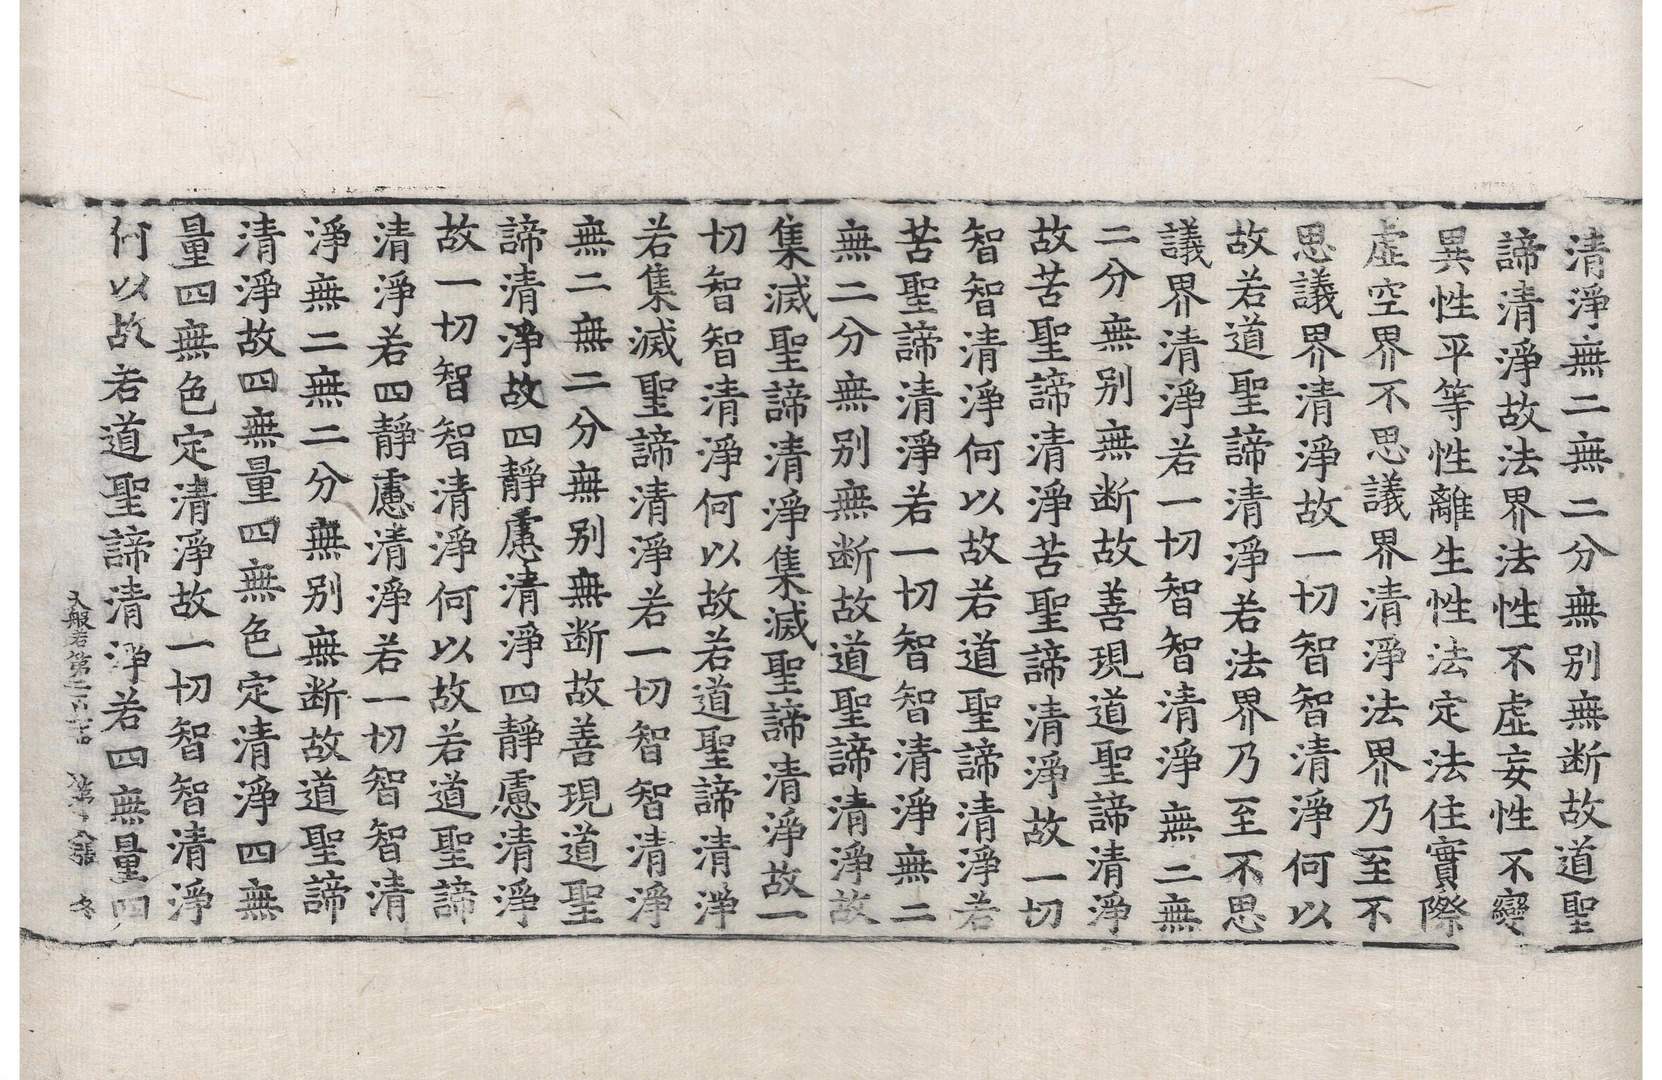 清淨無二無二分無別無断故道聖
諦清淨故法界法性不虛妄性不變
異性平等性離生性法定法住實際
虛空界不思議界清淨法界乃至不
思議界清淨故一切智智清淨何以
故若道聖諦清淨若法界乃至不思
議界清淨若一切智智清淨無二無
二分無別無断故善現道聖諦清淨
故苦聖諦清淨苦聖諦清淨故一切
智智清淨何以故若道聖諦清淨若
苦聖諦清淨若一切智智清淨無二
無二分無別無断故道聖諦清淨故
集滅聖諦清淨集滅聖諦清淨故一
切智智清淨何以故若道聖諦清淨
若集滅聖諦清淨若一切智智清淨
無二無二分無別無断故善現道聖
諦清淨故四靜慮清淨四靜慮清淨
故一切智智清淨何以故若道聖諦
清淨若四靜慮清淨若一切智智清
淨無二無二分無別無断故道聖諦
清淨故四無量四無色定清淨四無
量四無色定清淨故一切智智清淨
何以故若道聖諦清淨若四無量四
般若第二 第 張